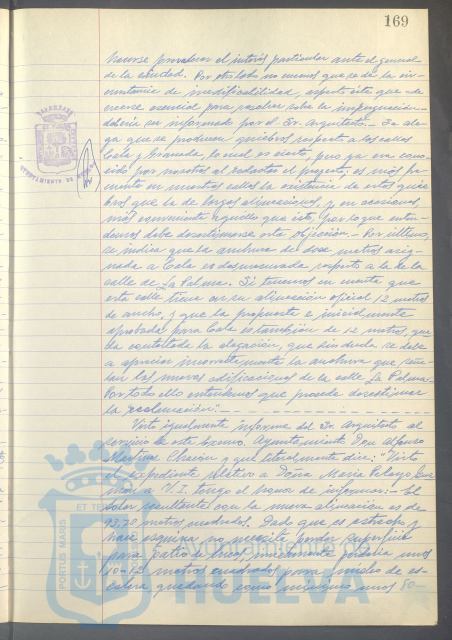 169
hacerse prevalecer el interés particular ante el general
de la ciudad. Por otro lado no menos que se de la cir-
cunstancia de inedificabilidad, aspecto éste que
esencial para resolver sobre la impugnación
debería ser informado por el Sr. Arquitecto. Se ale-
ga que se producen quiebros respecto a las calles
Cala y Granada, lo cual es cierto, pero ya era cono-
cido por nosotros al redactar el proyecto; es más fre-
cuente en nuestras calles la existencia de estos quie-
bros que la de largas alineaciones, y en ocasiones,
más conveniente aquello que esto, por lo que enten-
demos debe desestimarse esta objeción. Por último,
se indica que la anchura de doce metros asig-
nada a Cala es desmesurada respecto a la de la
calle de La Palma. Si tenemos en cuenta que
esta calle tiene en su alineación oficial 12 metros
de ancho, y que la propuesta e inicialmente
aprobada para Cala es también de 12 metros, que-
da contestada la alegación, que sin duda se debe
a apreciar incorrectamente la anchura que seña-
lan las nuevas edificaciones de la calle La Palma.
Por todo ello entendemos que procede desestimar
la reclamación:
Visto igualmente informe del Sr. Arquitecto al
servicio de este Excmo. Ayuntamiento Don Alfonso
Martínez Chacón y que literalmente dice: "Visto
el expediente relativo a Doña María Pelayo
a V.I. tengo el honor de informar: El
solar resultante con la nueva alineación es de
93,78 metros cuadrados. Dado que es estrecho y
hace esquina, no necesita perder superficie
para patio de luces, únicamente perdería unos
10-12 metros cuadrados para núcleo de es-
calera, quedando como mínimo unos 80-
PORTUS MARIS
ET TE
HUELVA